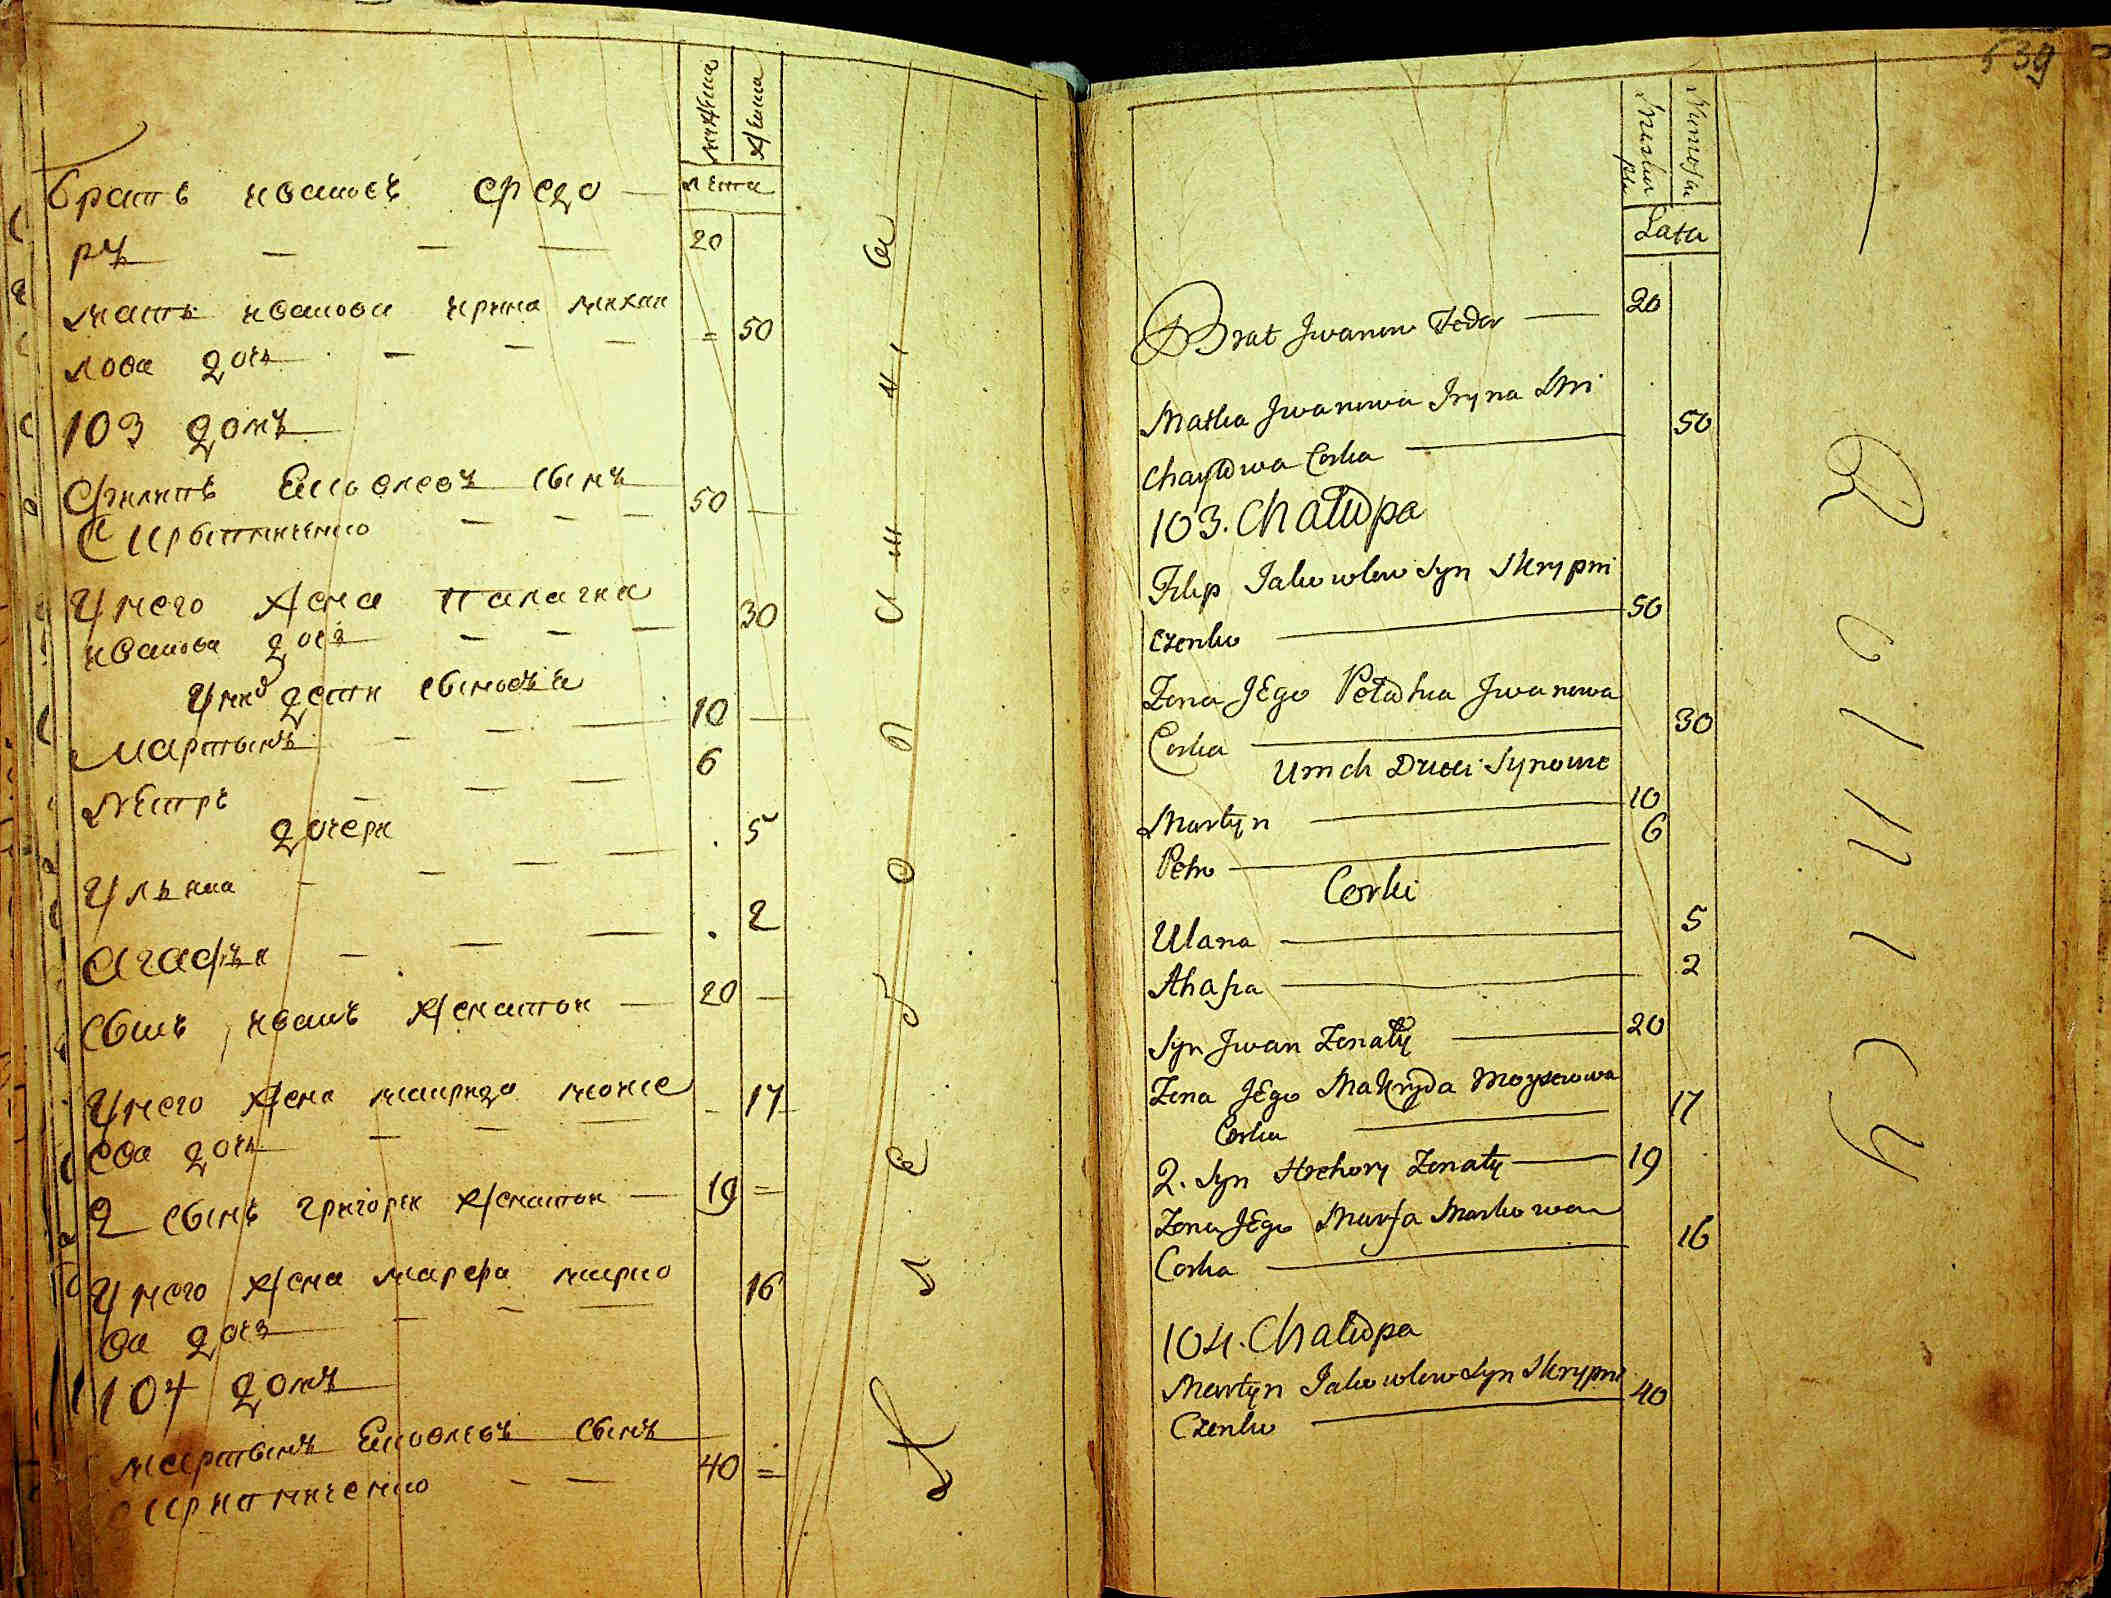 мужеска
женска
лета
братъ ивановъ Федо
ръ 20
мать иванова ирина михаи
лова дочь = 50
103 домъ
Филипъ Еково левъ сынъ
Скрыпниченко 50
у него жена палагия
иванова дочь 30
у них дети сыновья
мартынъ 10
петръ 6
дочери
ульяна 5
агафья 2
сынъ иванъ женатои 20
у него жена макрида моисе
ева дочь 17
2 сынъ григореи женатои 19 =
у него жена марфа марко
ва дочь 16
104 домъ
мартынъ Еково левъ сынъ
скрипниченко 40 =
539
Lata
Brat Jwanow Fedor 20
Matka Jwanowa Iryna Mi
chayłowa Corka 50
103. Chałupa
Filip Jakowlew Syn Skrypni
czenko 50
Zona JEgo Pełahia Jwanowa
Corka 30
U nich Dzieci Synowie
Martyn 10
Petro 6
Corki
Ulana 5
Ahafia 2
Syn Jwan Zonaty 20
Zona JEgo Makryda Moyseiowa
Corka 17
2. Syn Hrehory Zonaty 19
Zona JEgo Marfa Markowa
Corka 16
104. Chałupa
Martyn Jakowlew Syn Skrypni
Czenko 40